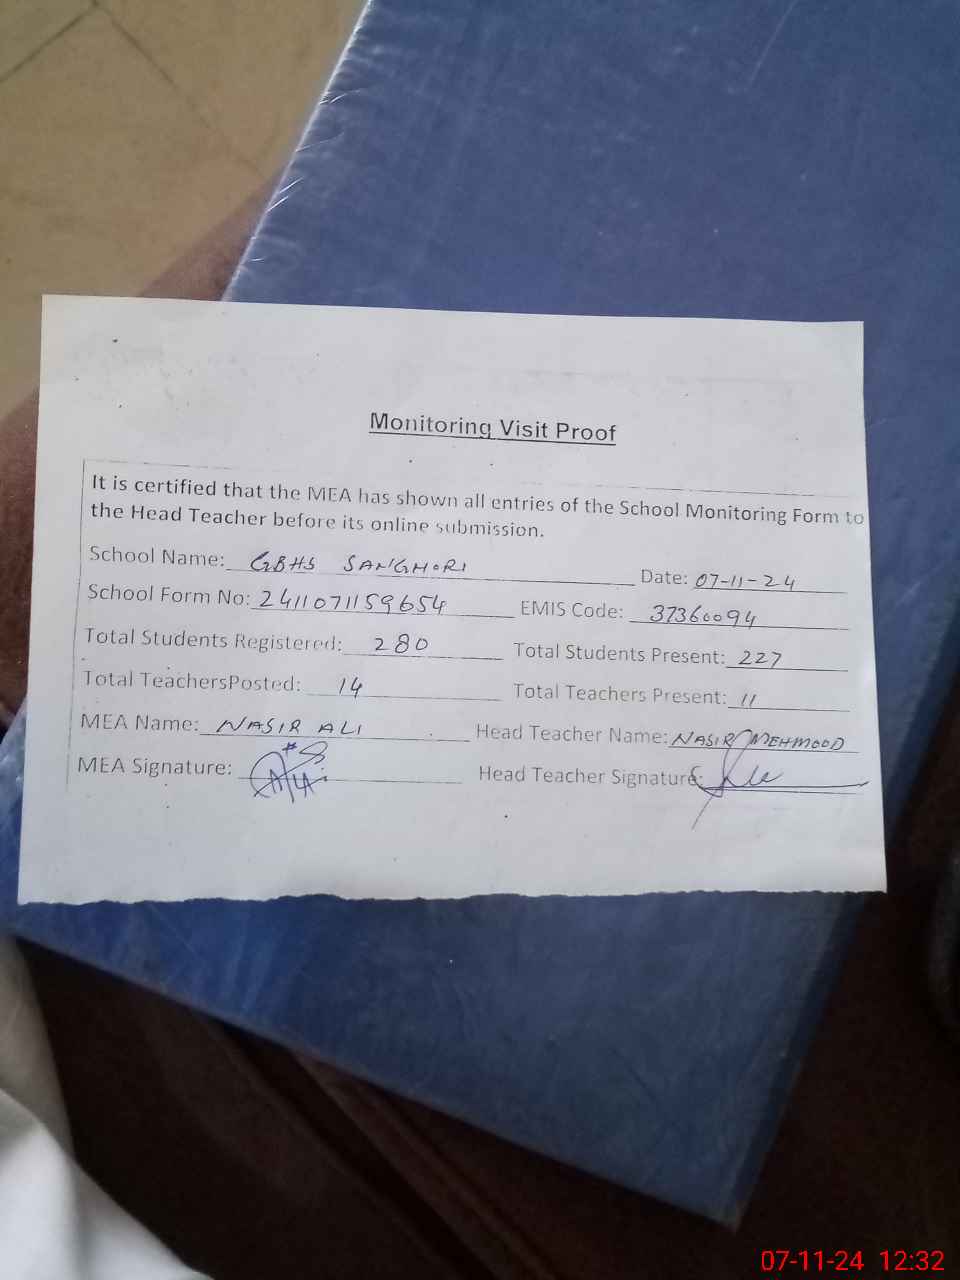 Monitoring Visit Proof
It is certified that the MEA has shown all entries of the School Monitoring Form to
the Head Teacher before its online submission.
School Name: GBHS SANGHORI Date: 07-11-24
School Form No: 2411071159654 EMIS Code: 37360094
Total Students Registered: 280 Total Students Present: 227
Total TeachersPosted: 14 Total Teachers Present: 11
MEA Name: NASIR ALI Head Teacher Name: NASIR MEHMOOD
MEA Signature: Head Teacher Signature:
07-11-24 12:32